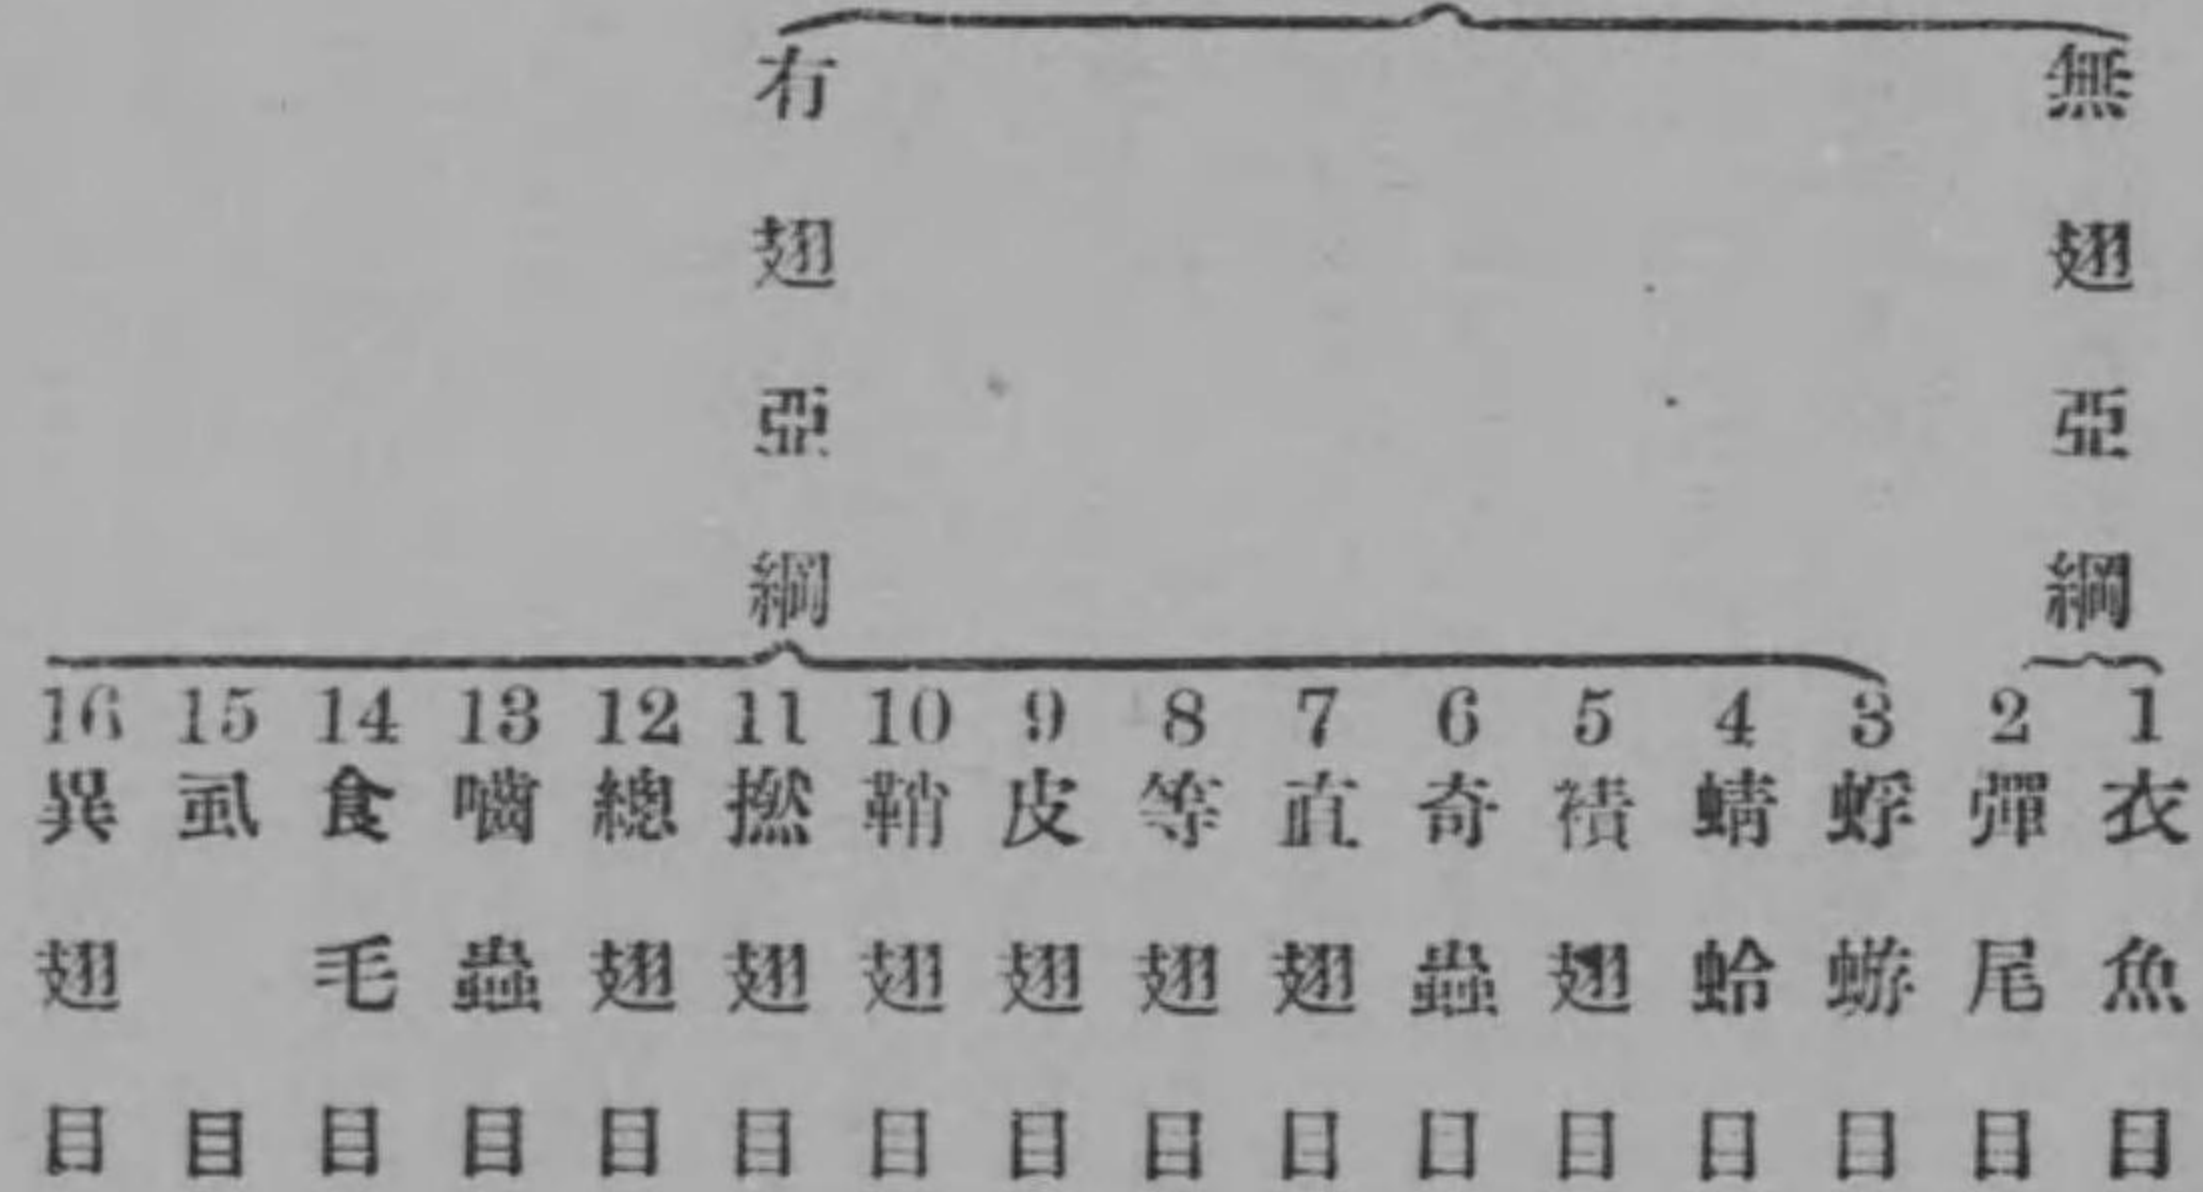 無翅亞綱
1 衣魚目
2 彈尾目
有翅亞綱
3 蜉蝣目
4 蜻蛉目
5 襀翅目
6 奇蟲目
7 直翅目
8 等翅目
9 皮翅目
10 鞘翅目
11 撚翅目
12 總翅目
13 嚙蟲目
14 食毛目
15 虱目
16 異翅目